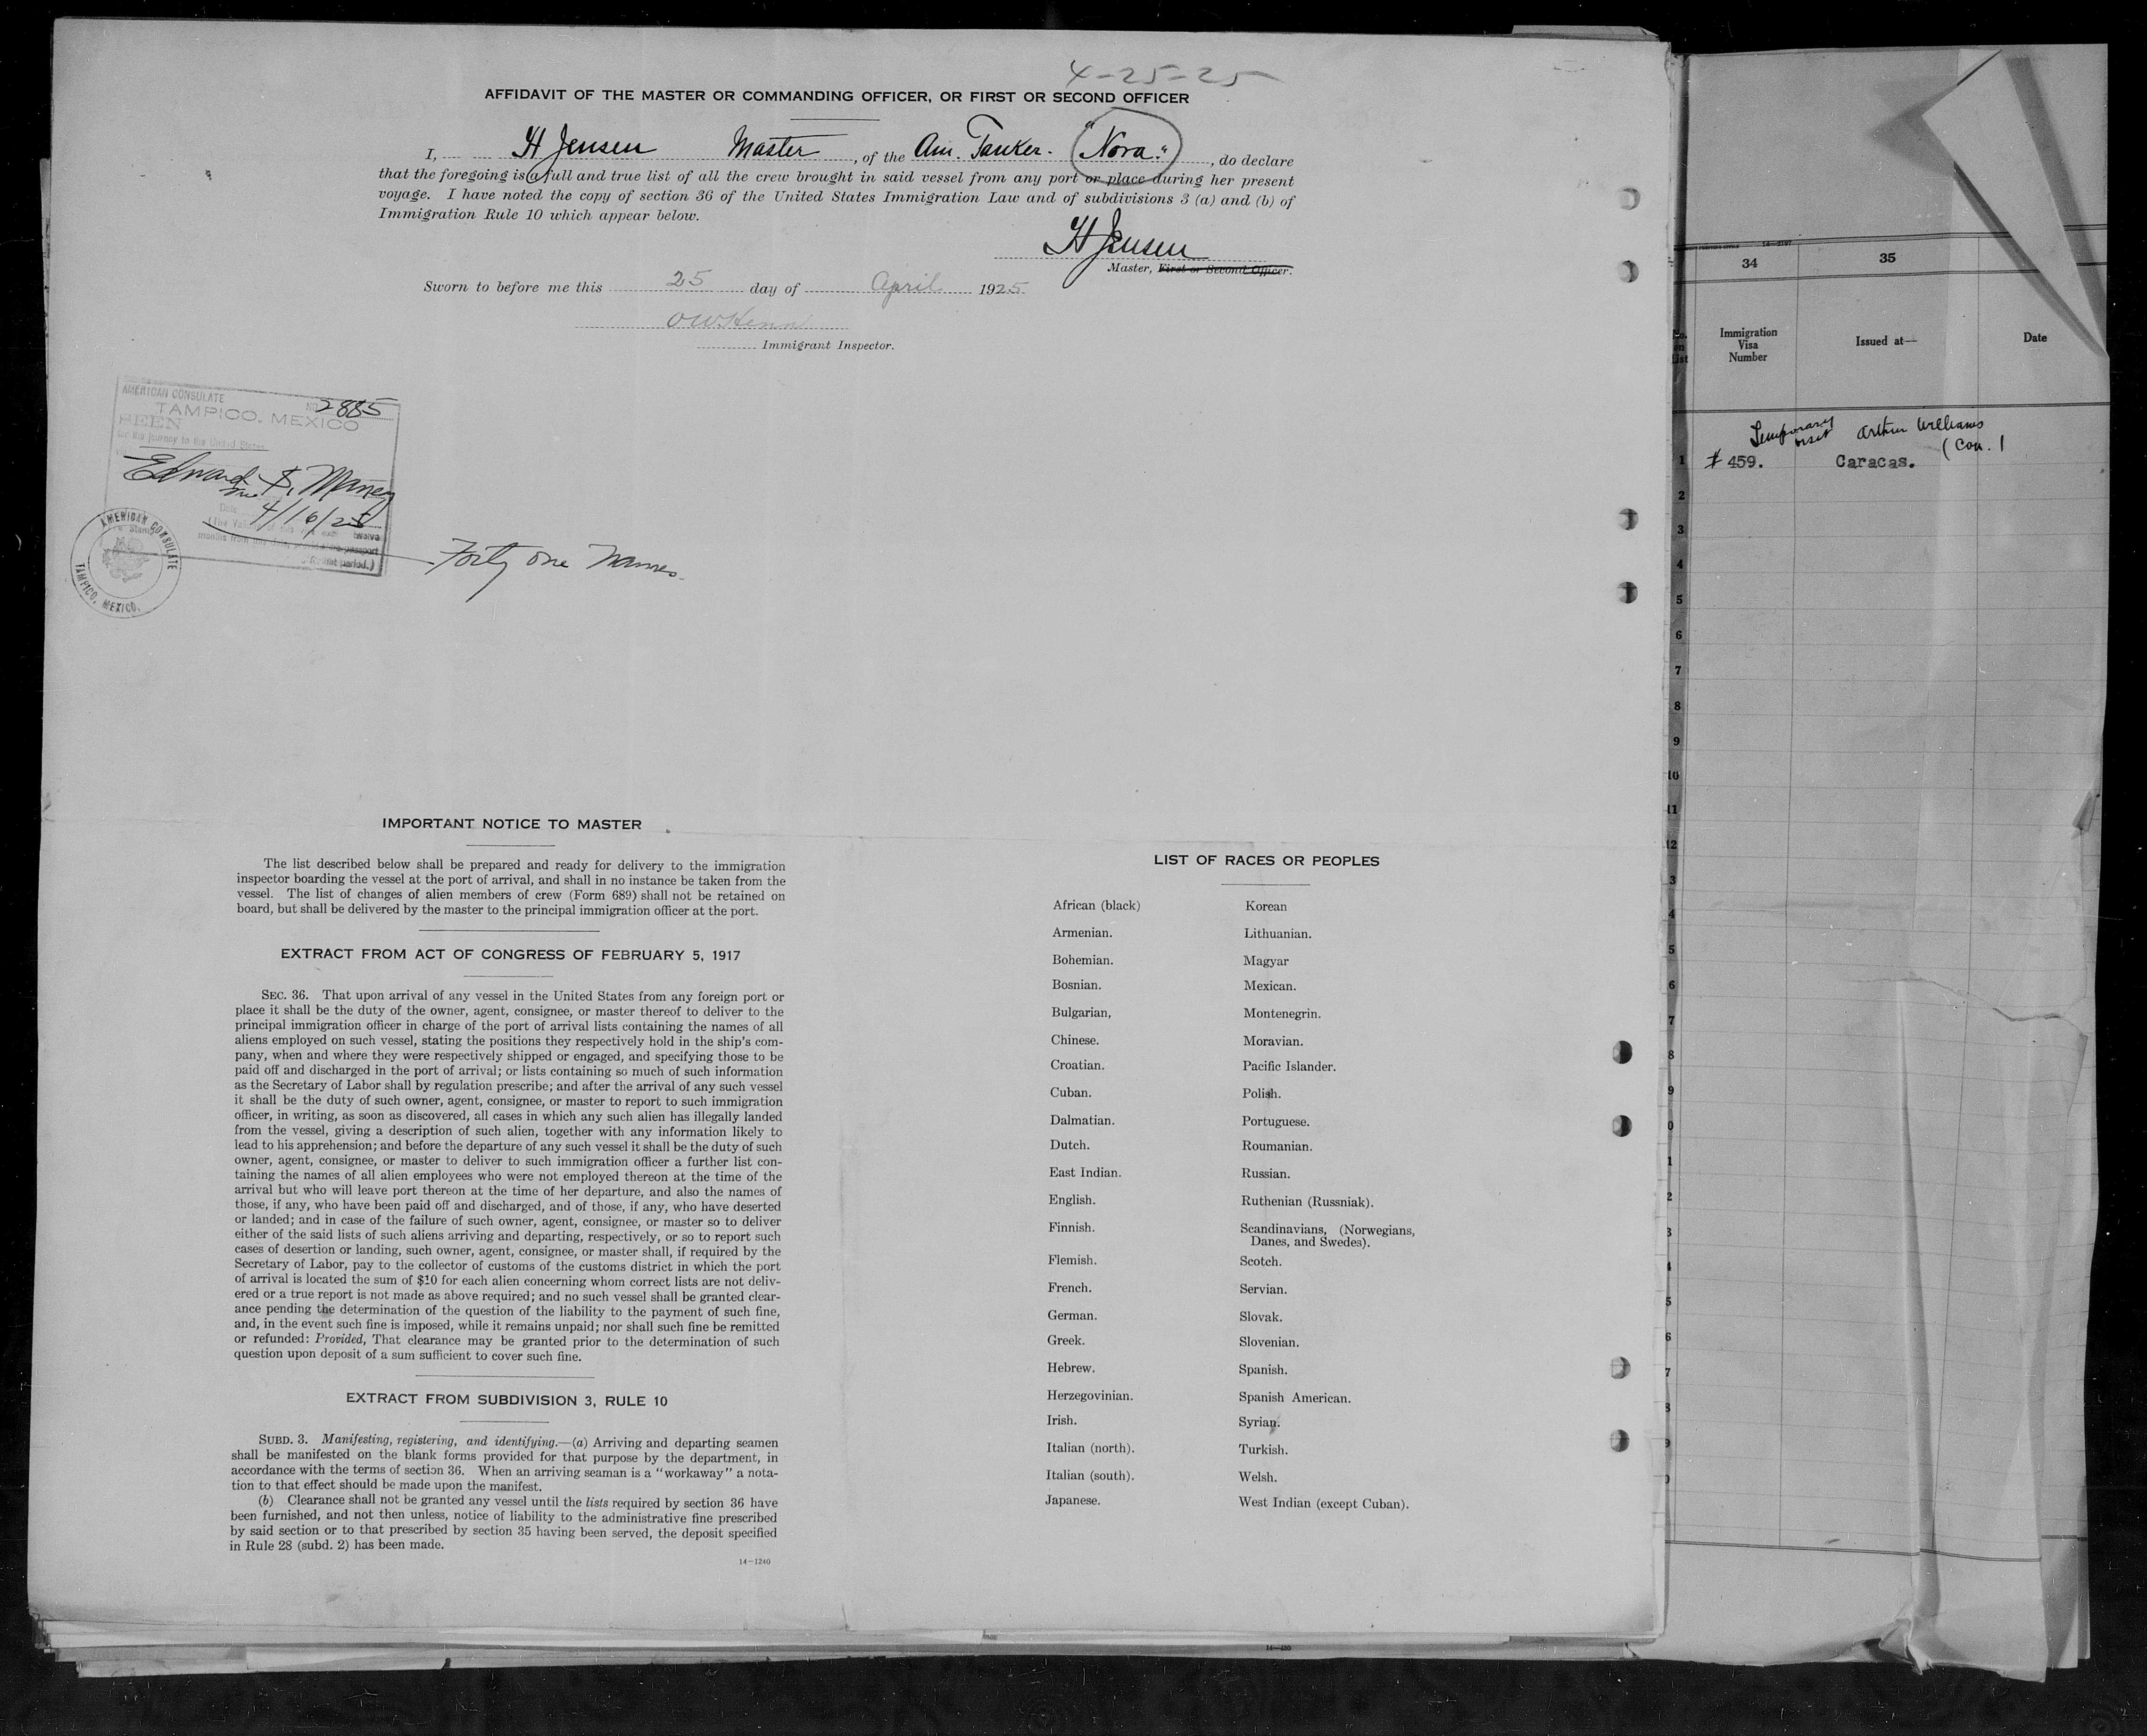 4-25-25
AFFIDAVIT OF THE MASTER OR COMMANDING OFFICER, OR FIRST OR SECOND OFFICER
I, H Jensen Master, of the Am. Tanker. "Nora.", do declare
that the foregoing is a full and true list of all the crew brought in said vessel from any port or place during her present
voyage. I have noted the copy of section 36 of the United States Immigration Law and of subdivisions 3 (a) and (b) of
Immigration Rule 10 which appear below.
H Jensen
Master, First or Second Officer.
Sworn to before me this 25 day of April 1925
Immigrant Inspector.
AMERICAN CONSULATE
No. 2885
TAMPICO, MEXICO
SEEN
For the journey to the United States
Edward S. Maney
Date 4/16/25
months from
AMERICAN CONSULATE
TAMPICO, MEXICO.
Forty one Names
IMPORTANT NOTICE TO MASTER
The list described below shall be prepared and ready for delivery to the immigration
inspector boarding the vessel at the port of arrival, and shall in no instance be taken from the
vessel. The list of changes of alien members of crew (Form 689) shall not be retained on
board, but shall be delivered by the master to the principal immigration officer at the port.
EXTRACT FROM ACT OF CONGRESS OF FEBRUARY 5, 1917
SEC. 36. That upon arrival of any vessel in the United States from any foreign port or
place it shall be the duty of the owner, agent, consignee, or master thereof to deliver to the
principal immigration officer in charge of the port of arrival lists containing the names of all
aliens employed on such vessel, stating the positions they respectively hold in the ship's com-
pany, when and where they were respectively shipped or engaged, and specifying those to be
paid off and discharged in the port of arrival; or lists containing so much of such information
as the Secretary of Labor shall by regulation prescribe; and after the arrival of any such vessel
it shall be the duty of such owner, agent, consignee, or master to report to such immigration
officer, in writing, as soon as discovered, all cases in which any such alien has illegally landed
from the vessel, giving a description of such alien, together with any information likely to
lead to his apprehension; and before the departure of any such vessel it shall be the duty of such
owner, agent, consignee, or master to deliver to such immigration officer a further list con-
taining the names of all alien employees who were not employed thereon at the time of the
arrival but who will leave port thereon at the time of her departure, and also the names of
those, if any, who have been paid off and discharged, and of those, if any, who have deserted
or landed; and in case of the failure of such owner, agent, consignee, or master so to deliver
either of the said lists of such aliens arriving and departing, respectively, or so to report such
cases of desertion or landing, such owner, agent, consignee, or master shall, if required by the
Secretary of Labor, pay to the collector of customs of the customs district in which the port
of arrival is located the sum of $10 for each alien concerning whom correct lists are not deliv-
ered or a true report is not made as above required; and no such vessel shall be granted clear-
ance pending the determination of the question of the liability to the payment of such fine,
and, in the event such fine is imposed, while it remains unpaid; nor shall such fine be remitted
or refunded: Provided, That clearance may be granted prior to the determination of such
question upon deposit of a sum sufficient to cover such fine.
EXTRACT FROM SUBDIVISION 3, RULE 10
SUBD. 3. Manifesting, registering, and identifying.—(a) Arriving and departing seamen
shall be manifested on the blank forms provided for that purpose by the department, in
accordance with the terms of section 36. When an arriving seaman is a "workaway" a nota-
tion to that effect should be made upon the manifest.
(b) Clearance shall not be granted any vessel until the lists required by section 36 have
been furnished, and not then unless, notice of liability to the administrative fine prescribed
by said section or to that prescribed by section 35 having been served, the deposit specified
in Rule 28 (subd. 2) has been made.
14-1240
LIST OF RACES OR PEOPLES
African (black) Korean
Armenian. Lithuanian.
Bohemian. Magyar
Bosnian. Mexican.
Bulgarian, Montenegrin.
Chinese. Moravian.
Croatian. Pacific Islander.
Cuban. Polish.
Dalmatian. Portuguese.
Dutch. Roumanian.
East Indian. Russian.
English. Ruthenian (Russniak).
Finnish. Scandinavians, (Norwegians,
Danes, and Swedes).
Flemish. Scotch.
French. Servian.
German. Slovak.
Greek. Slovenian.
Hebrew. Spanish.
Herzegovinian. Spanish American.
Irish. Syrian.
Italian (north). Turkish.
Italian (south). Welsh.
Japanese. West Indian (except Cuban).
34 35
Immigration
Visa
Number
Issued at—
Date
Temporary visit Arthur Williams
(Con.)
1 # 459. Caracas.
2
3
4
5
6
7
8
9
10
11
12
3
4
5
6
7
8
9
0
1
2
3
4
5
6
7
8
9
0